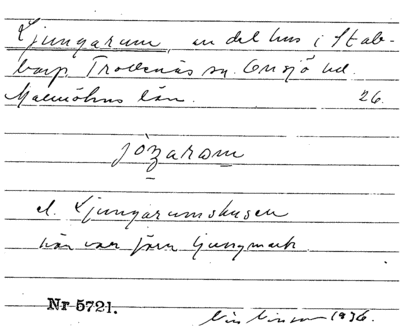 Ljungarum, en del hus i Stab-
barp. Trollenäs sn. Onsjö hd.
Malmöhus län. 26.
jòzarωm
el. Ljungarumshusen
här var förr ljungmark.
Nr 5721.
1936.